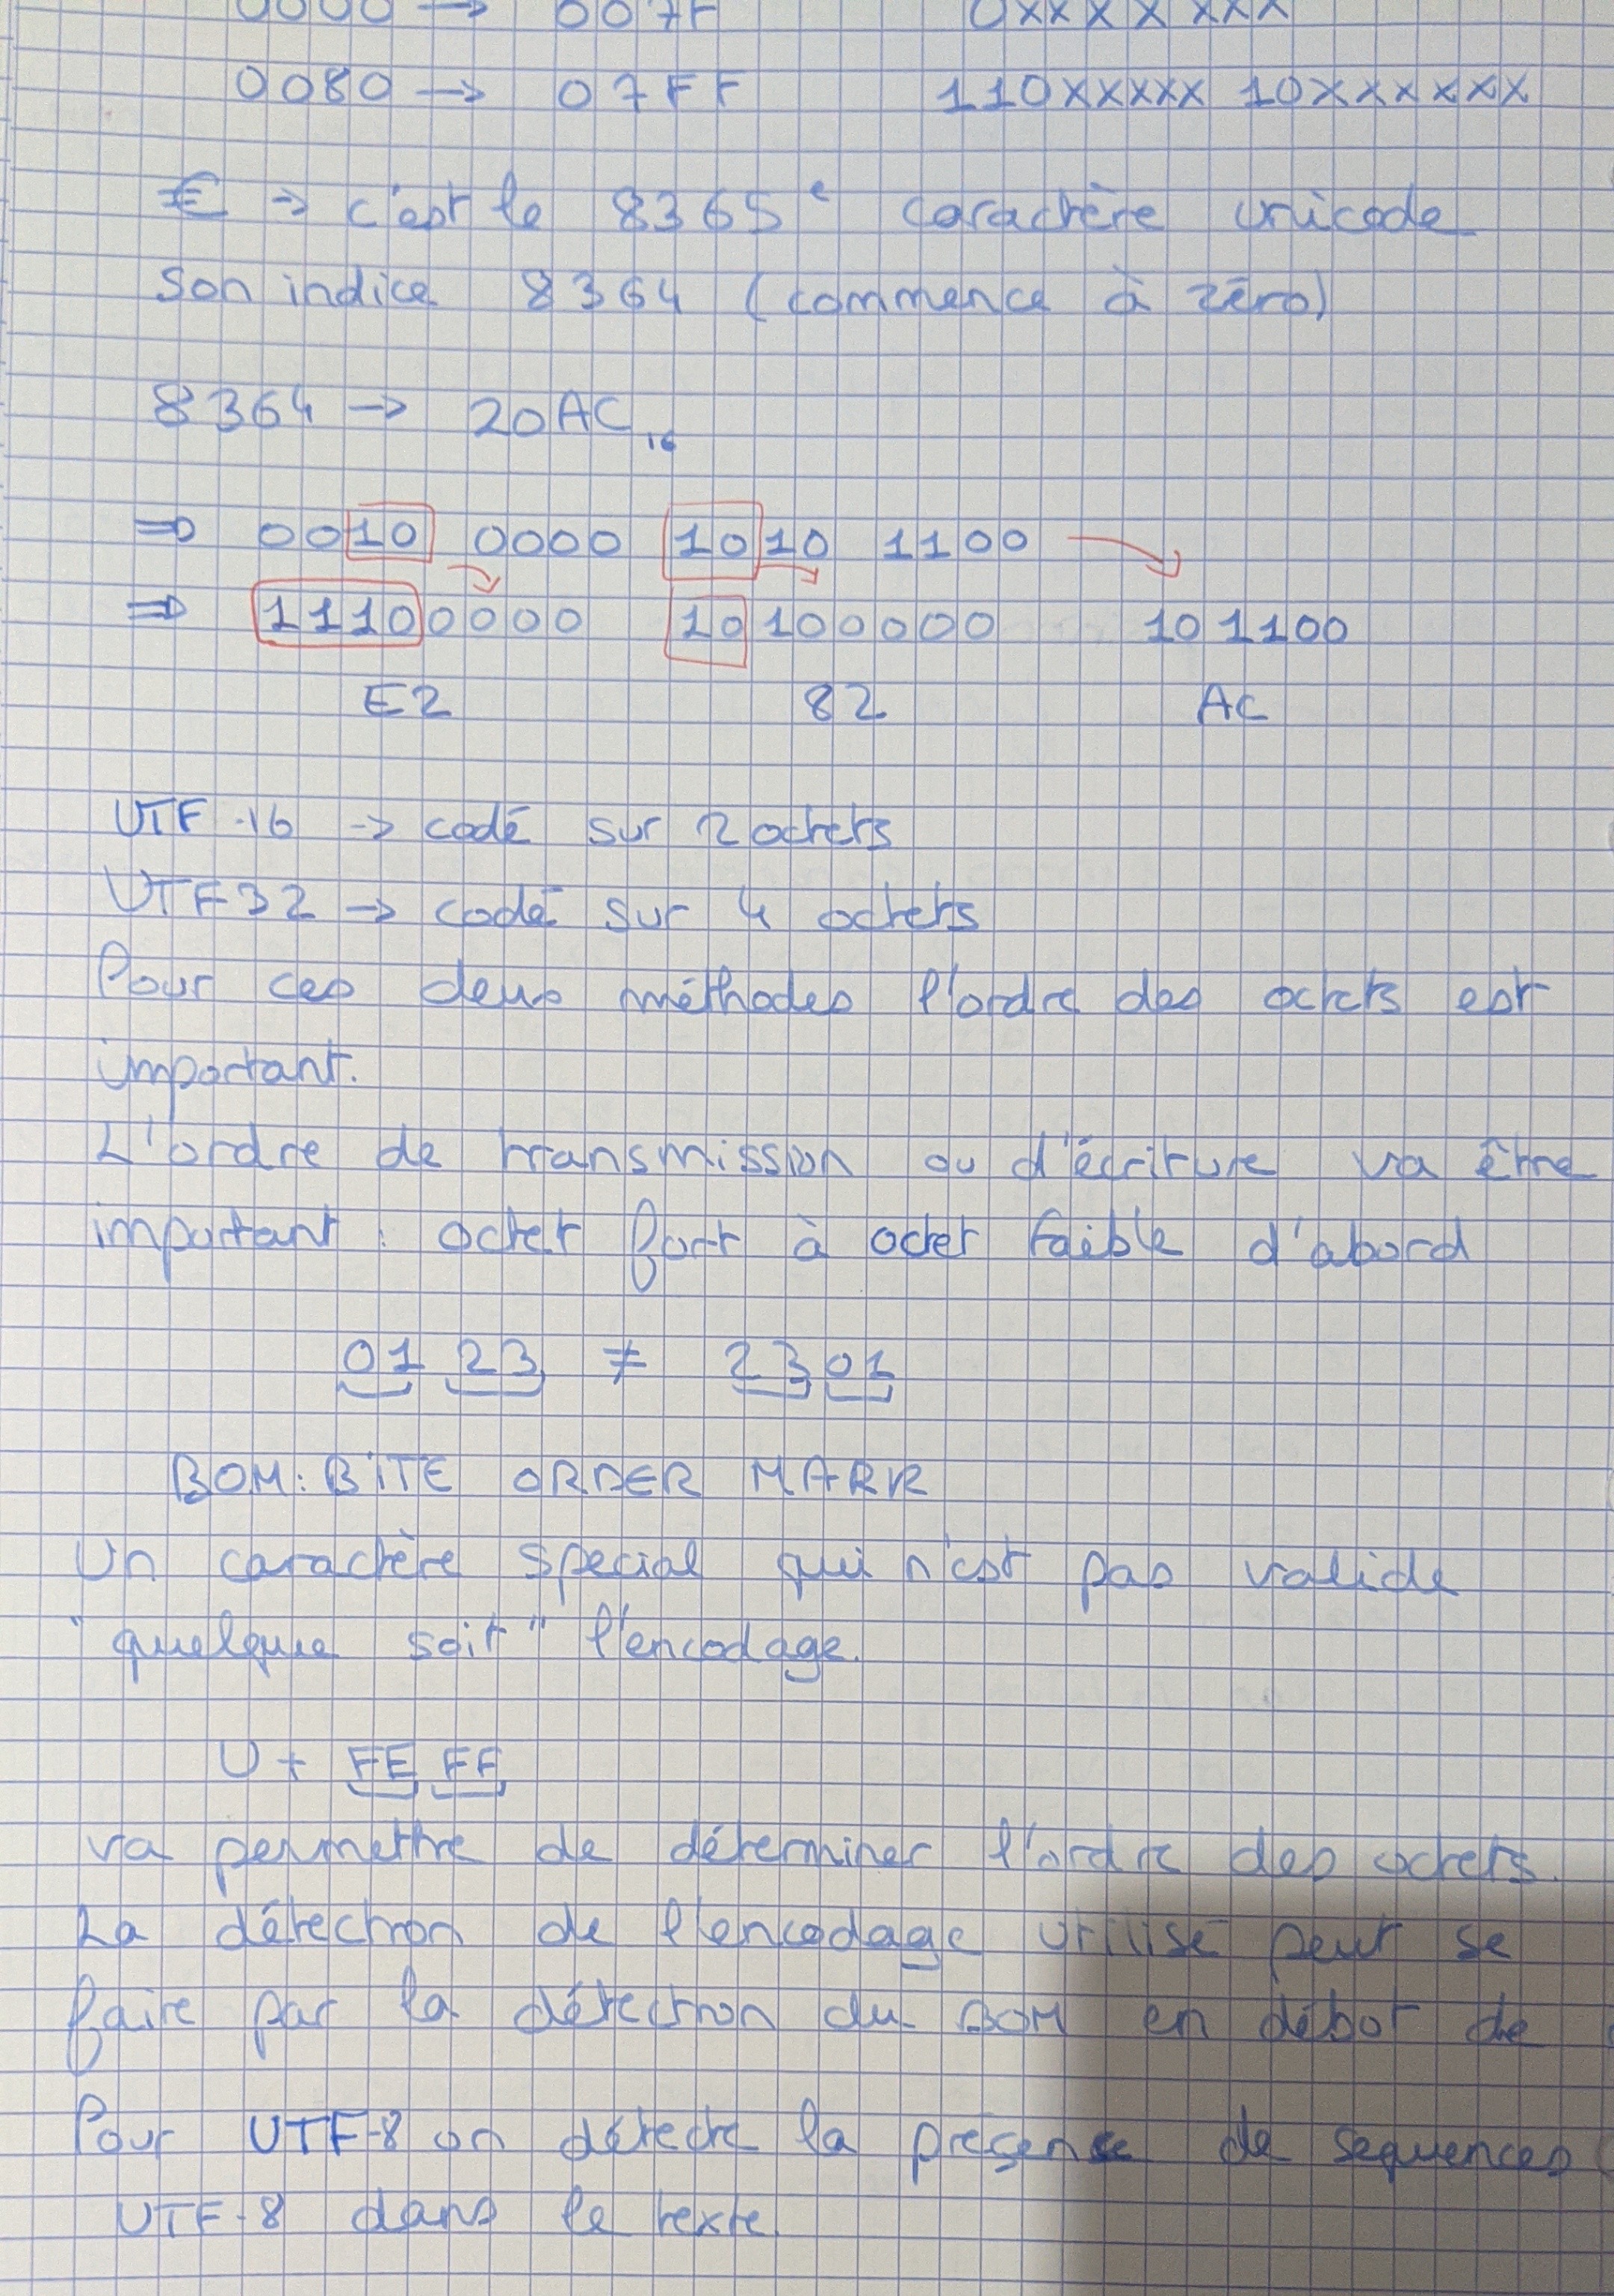 0000 → 007F 0xxxxxxx
0080 → 07FF 110xxxxx 10xxxxxx
€ → c'est le 8365e caractère unicode
son indice 8364 (commence à zéro)
8364 → 20AC16
⇒ 0010 0000 1010 1100
⇒ 11100000 10100000 101100
E2 82 AC
UTF-16 → codé sur 2 octets
UTF32 → codé sur 4 octets
Pour ces deux méthodes l'ordre des octets est
important.
L'ordre de transmission ou d'écriture va être
important : octet fort à octet faible d'abord
01 23 ≠ 23 01
BOM: BITE ORDER MARK
Un caractère special qui n'est pas valide
"quelque soit" l'encodage.
U+ FE FF
va permettre de déterminer l'ordre des octets.
La détection de l'encodage utilisé peut se
faire par la détection du BOM en débot de
Pour UTF-8 on détecte la présence de séquences
UTF-8 dans le texte.